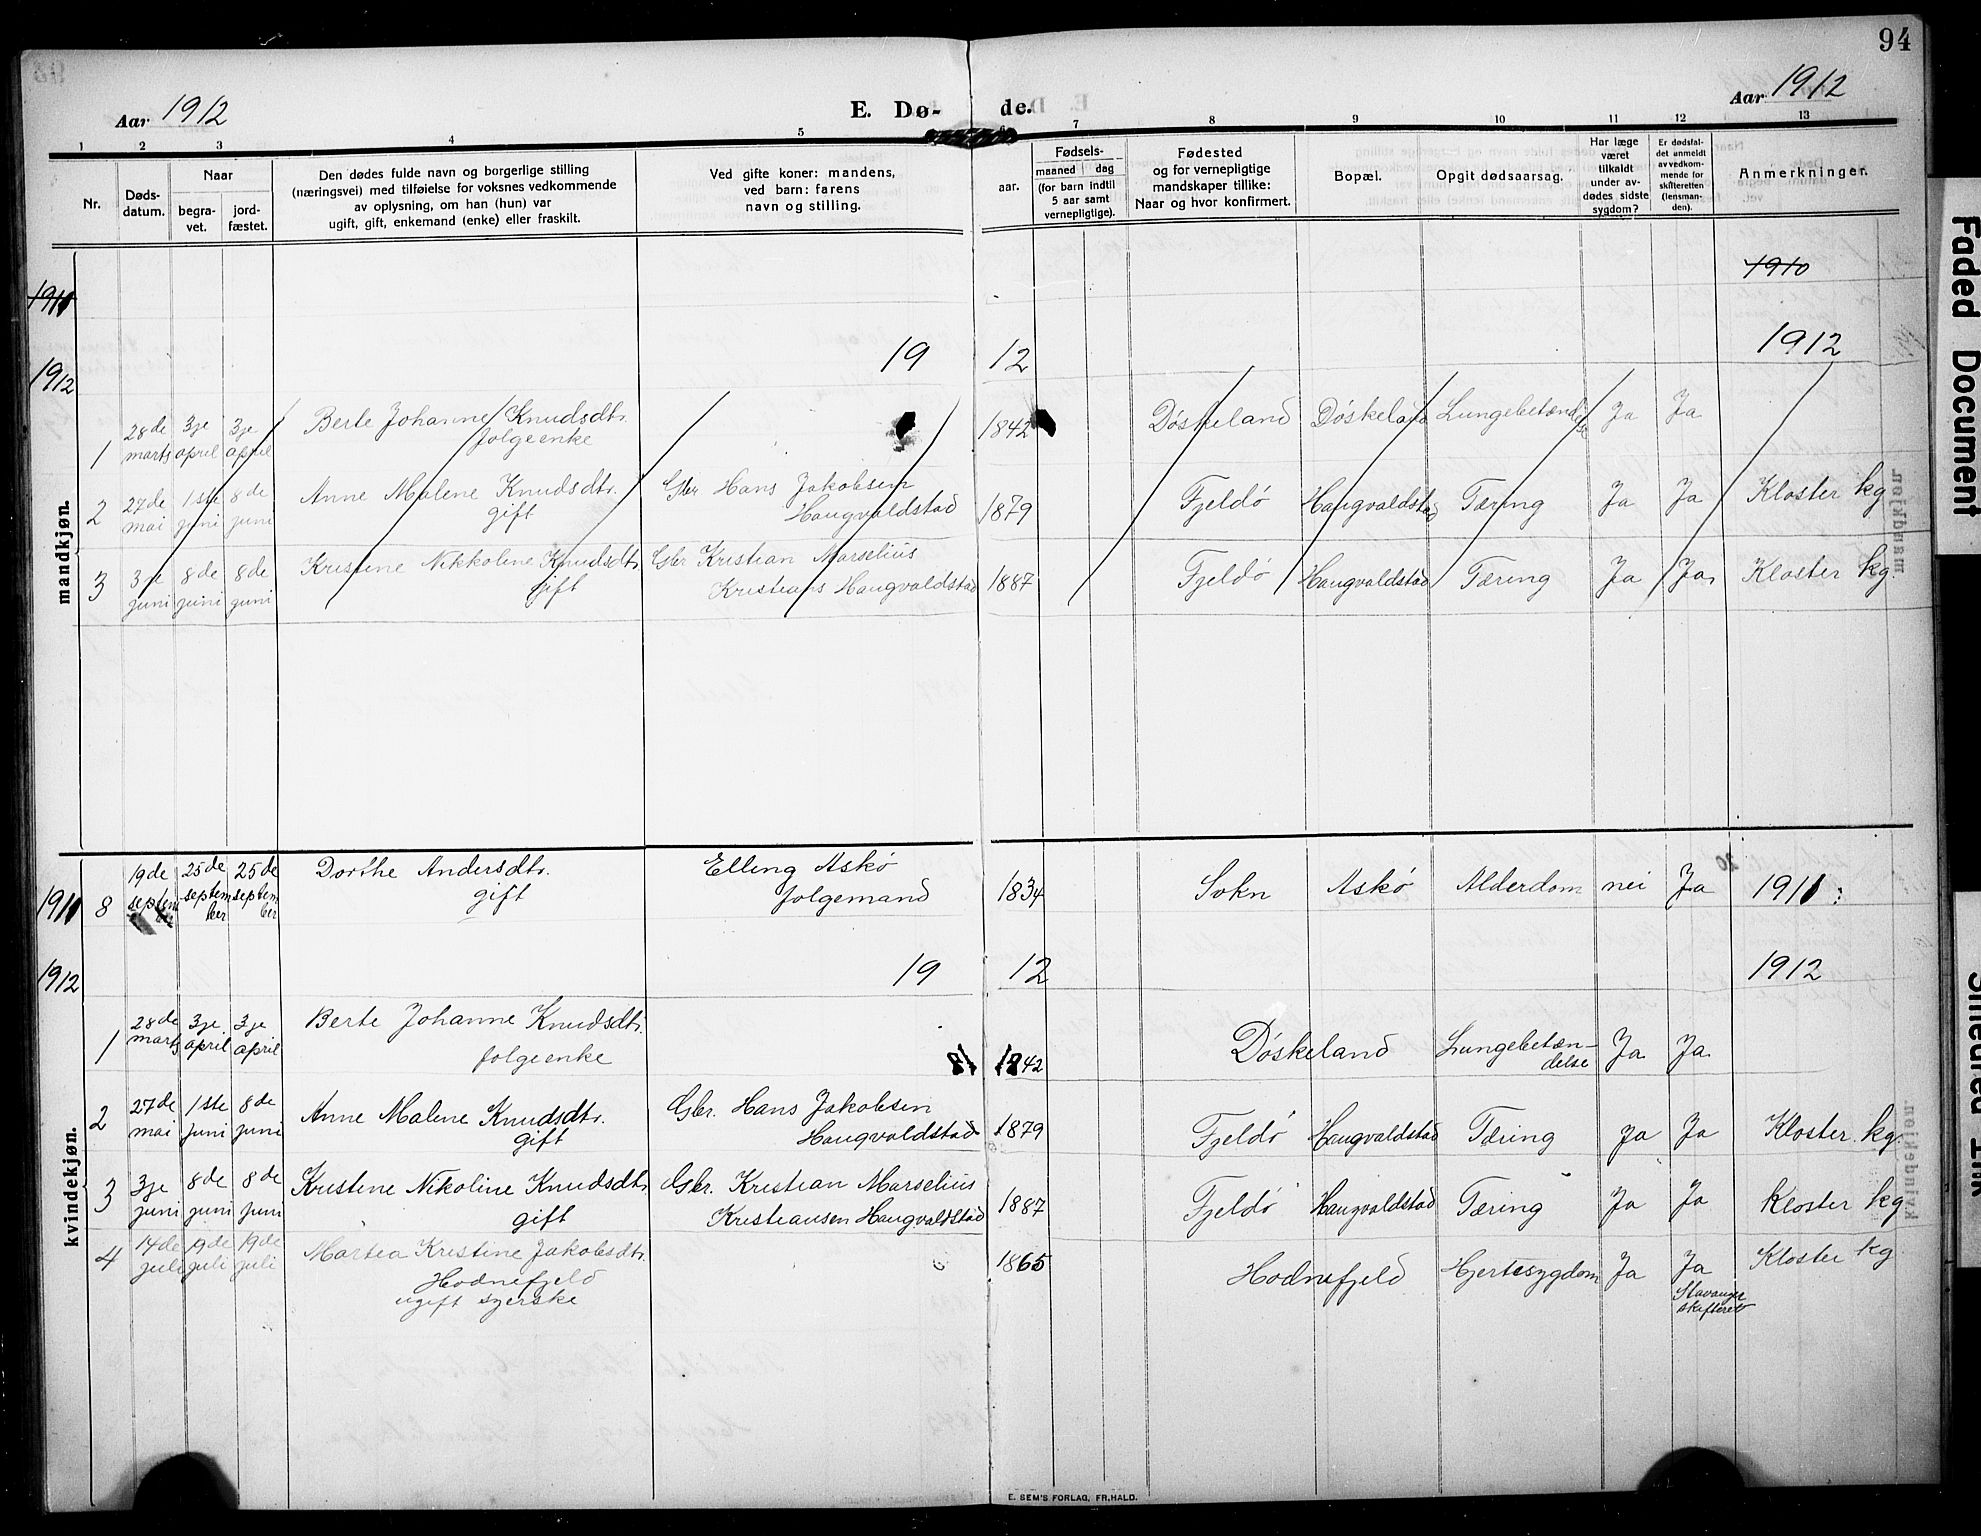 94
Aar 1912
E. Dø-
de.
Aar 1912
1 2 3 4 5 6 7 8 9 10 11 12 13
Nr.
Døds-
datum.
Naar
begra-
vet.
jord-
fæstet.
Den dødes fulde navn og borgerlige stilling
(næringsvei) med tilføielse for voksnes vedkommende
av oplysning, om han (hun) var
ugift, gift, enkemand (enke) eller fraskilt.
Ved gifte koner: mandens,
ved barn: farens
navn og stilling.
aar.
Fødsels-
maaned dag
(for barn indtil
5 aar samt
vernepligtige).
Fødested
og for vernepligtige
mandskaper tillike:
Naar og hvor konfirmert.
Bopæl.
Opgit dødsaarsag.
Har læge
været
tilkaldt
under av-
dødes sidste
sygdom?
Er dødsfal-
det anmeldt
av vedkom-
mende for
skifteretten
(lensman-
den).
Anmerkninger.
1911
1910
1912
19 12
1912
mandkjøn.
1
28de
marts
3je
april
3je
april
Berte Johanne Knudsdtr.
folgeenke
1842
Døskeland
Døskeland
Lungebetændelse
Ja
Ja
2
27de
mai
1ste
juni
8de
juni
Anne Malene Knudsdtr.
gift
Gbr Hans Jakobsen
Haugvaldstad
1879
Fjeldø
Haugvaldstad
Tæring
Ja
Ja
Kloster kg
3
3je
juni
8de
juni
8de
juni
Kristine Nikkoline Knudsdtr
gift
Gbr Kristian Marselius
Kristians Haugvaldstad
1887
Fjeldø
Haugvaldstad
Tæring
Ja
Ja.
Kloster kg.
kvindekjøn.
1911
8
19de
septem
ber
25de
septem
ber
25de
septem
ber
Dorthe Andersdtr.
gift
Elling Askø
folgemand
1834
Sokn
Askø
Alderdom
nei
Ja
1911:
1912
19 12
1912
1
28de
marts
3je
april
3je
april
Berte Johanne Knudsdtr.
folgeenke
18
1842
Døskeland
Lungebetæn-
delse
Ja
Ja
2
27de
mai
1ste
juni
8de
juni
Anne Malene Knudsdtr.
gift
Gbr. Hans Jakobsen
Haugvaldstad
1879
Fjeldø
Haugvaldstad
Tæring
Ja
Ja
Kloster kg.
3
3je
juni
8de
juni
8de
juni
Kristine Nikoline Knudsdtr.
gift
Gbr. Kristian Marselius
Kristiansen Haugvaldstad
1887
Fjeldø
Haugvaldstad
Tæring
Ja
Ja
Kloster kg
4
14de
juli
19de
juli
19de
juli
Martea Kristine Jakobsdtr.
Hodnefjeld
ugift syerske
1865
Hodnefjeld
Hjertesygdom
Ja
Ja
Stavanger
skifteret
Kloster kg
E. SEM'S FORLAG, FR.HALD.
Faded Document
Smeared Ink